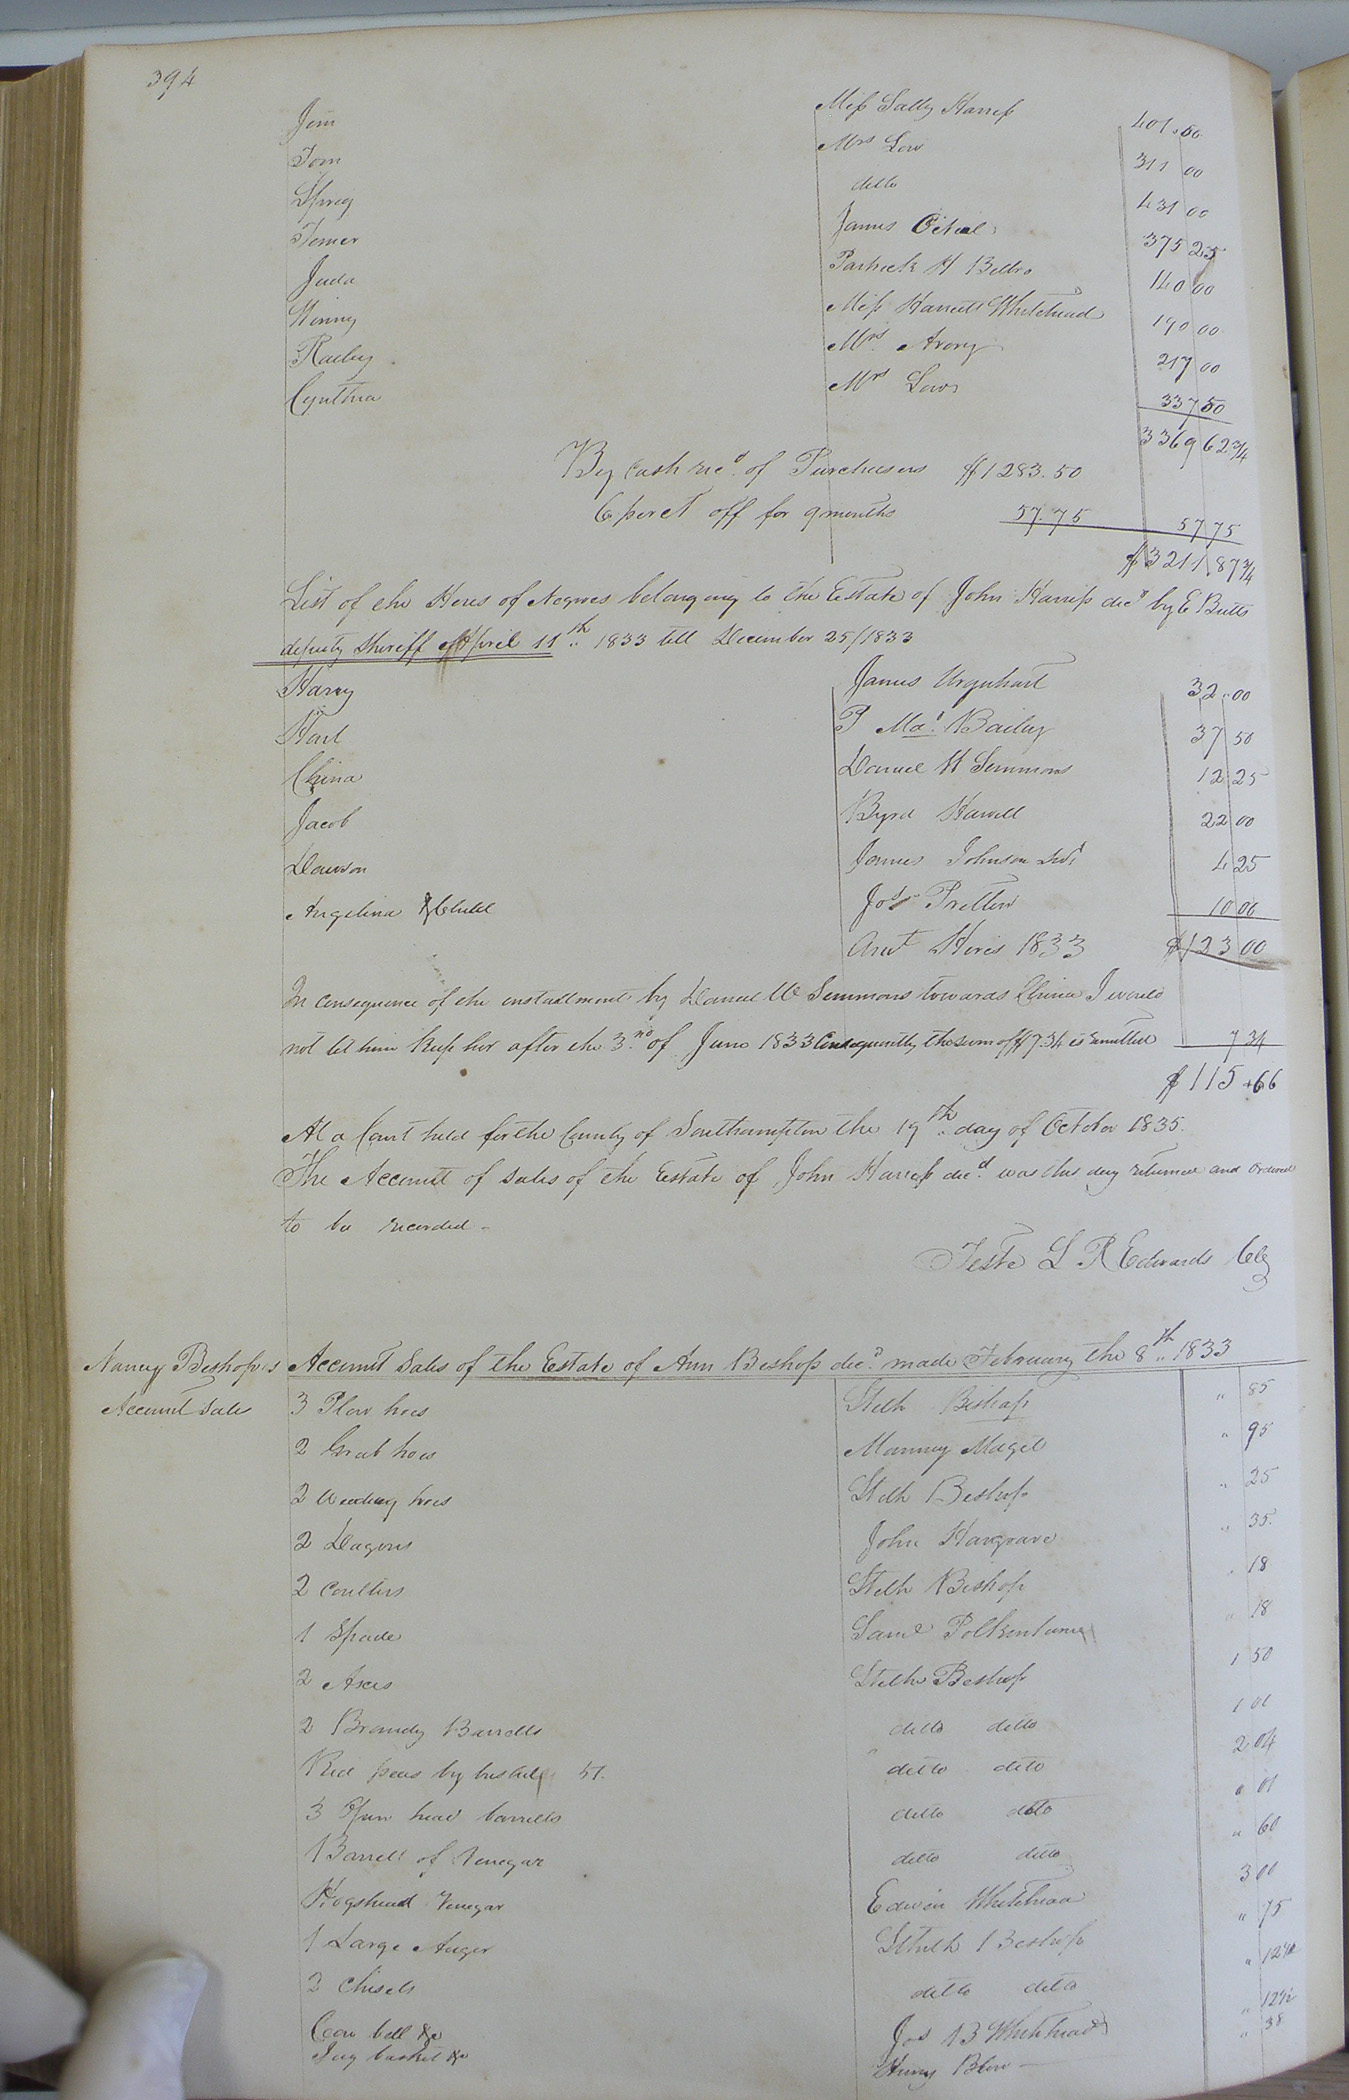 394
Jim Miss Sally Harriss 401.50
Tom Mrs Low 311 00
Spring ditto 431 00
Temer James 375 25
Juda Patrick H 140 00
Winny Miss Harriett Whitehead 190 00
Mrs. Avory 217 00
Cynthia Mrs Low 337 50
3369 62 3/4
By Cash recd. of Purchasers $1283.50
6 per ct off for 9 months 57.75 57 75
$3211.87 3/4
List of the Hires of Negroes belonging to the Estate of John Harriss decd by E Butts
deputy Sheriff April 11th 1833 till December 25/1833
Harry James Urquhart 32.00
Bailey 37 50
China Daniel W Simmons 12 25
Jacob Byrd Harrell 22 00
Dawson James Johnson 4 25
Angelina & Child Jos Pretlow 10 00
Amt Hires 1833 $123 00
In consequence of the by Daniel W Simmons towards China I would
not let him keep her after the 3rd of June 1833 Consequently the sum of $7.34 is omitted 7 34
$115.66
At a Court held for the County of Southampton the 19th day of October 1835.
The Account of sales of the Estate of John Harriss decd. was this day returned and ordered
to be recorded -
Teste L R Edwards Clk
Nancy Bishop's Account Sales of the Estate of Ann Bishop decd. made February the 8th 1833
Account Sales 3 Plow hoes Steth Bishop " 85
2 Grub hoes Manny Magee " 95
2 Weeding hoes Steth Bishop " 25
2 Dagons John Hargrave " 35.
2 Coulters Steth Bishop " 18
1 Spade Saml " 18
2 Axes Steth Bishop 1 50
2 Brandy Barrells ditto ditto 1 01
Red peas by bushel 51. ditto ditto 2 04
3 head barrells ditto ditto " 01
1 Barrell of Vinegar ditto ditto " 60
Hogshead Vinegar Edwin Whitehead 3 00
1 Large Auger Steth Bishop " 75
2 Chisels ditto ditto " 12 1/2
Cow bell &c Jos B Whitehead " 12 1/2
Jug basket &c Henry Blow - " 38